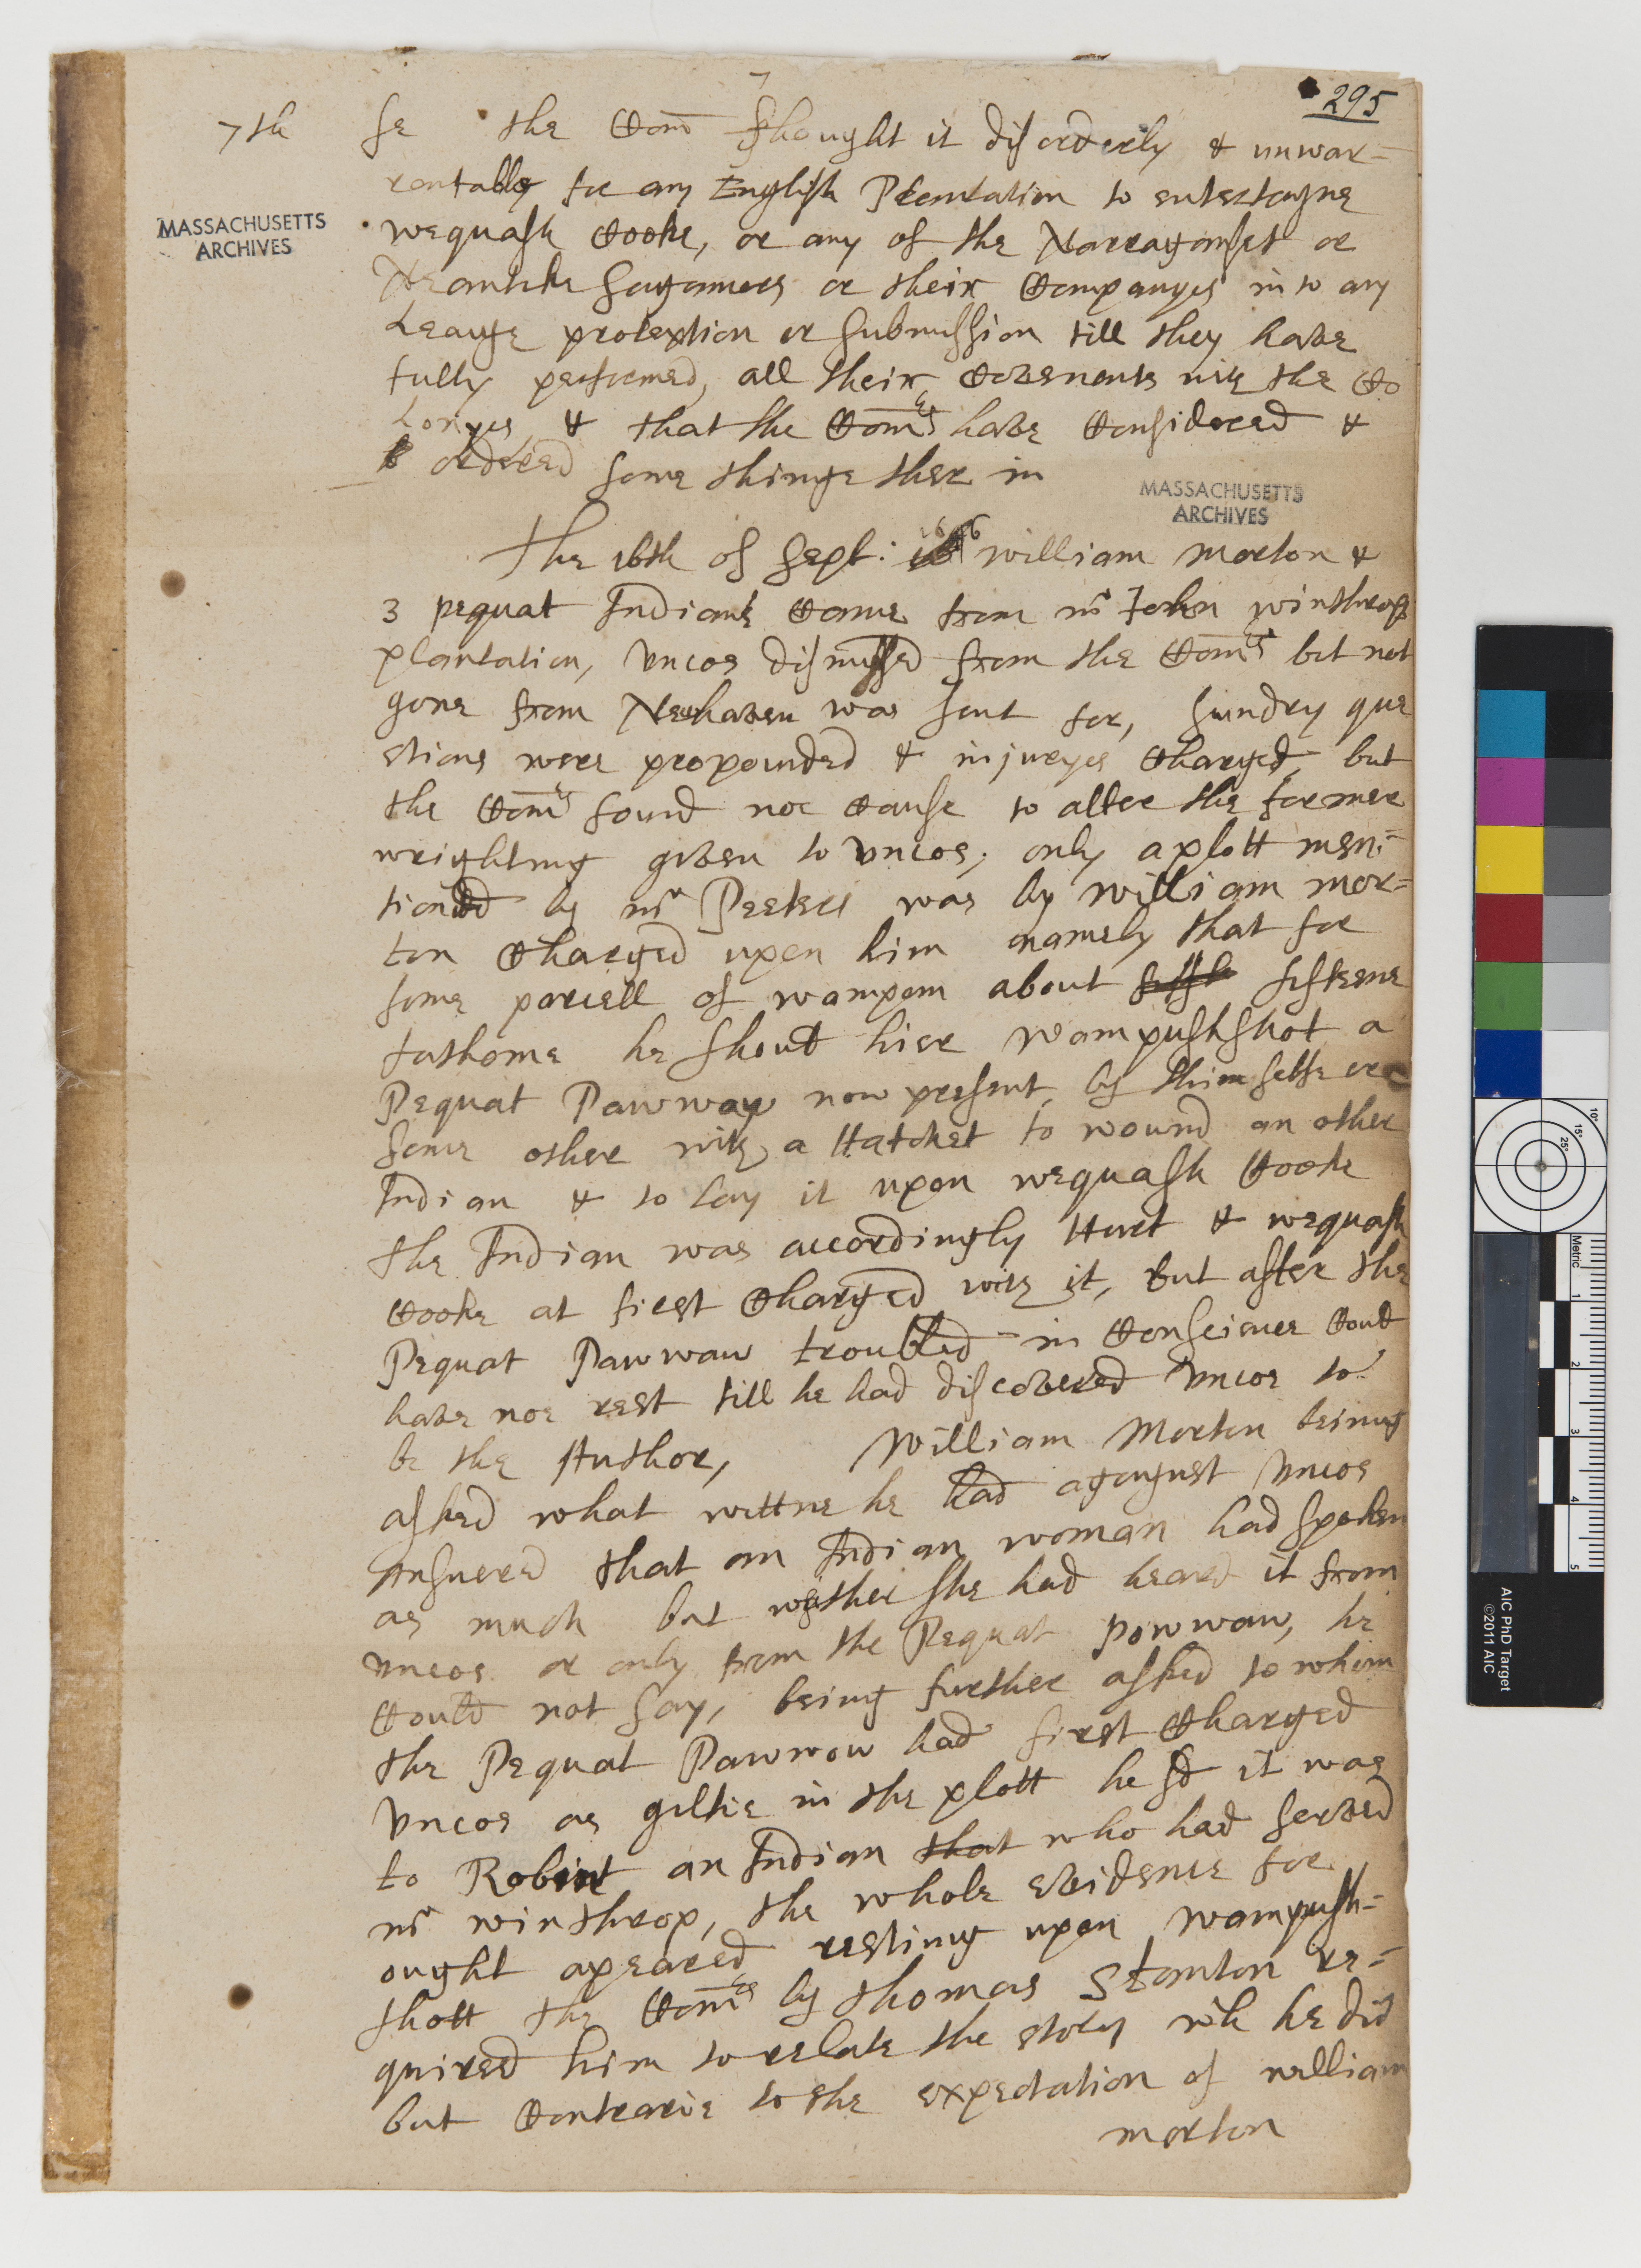 295
7th
se the Com thought it disorderly & unwar=
rentable for any English Plantation to entertayne
MASSACHUSETTS
ARCHIVES
wequash Cooke, or any of the Narraganset or
Neanticke sagamores or their Companyes in to any
Leauge protextion or submission till they have
fully performed, all their Covenents with the Co
lonyes & that the Comrs have Considered &
ordered some thinge ther in
MASSACHUSETTS
ARCHIVES
The 16th of Sept: 1646 william morton &
3 pequat Indians Came from mr John winthrops
plantation, Uncos dismissed from the Comrs but not
gone from Newhaven was sent for, sundry que
stions were propounded & injuryes Charged, but
the Comrs found noe Cause to alter the former
wrighting given to Uncos; only a plott men=
tioned by mr Peeters was by william mor=
ton Charged upon him namely that for
some parcell of wampom about fifteene
fathome he should hier Wampushshot a
Pequat Pawwaw now present, by himselfe or
some other with a Hatchet to wound an other
Indian & to lay it upon wequash Cooke
the Indian was accordingly Hurt & wequash
Cooke at first Charged with it, but after the
Pequat Pawwaw troubled in Conscience Could
have noe rest till he had discovered Uncos to
be the Author, William Morton being
asked what wittne he had agayust Uncos
Answered that an Indian woman had spoken
as much but wether she had heard it from
Uncos or only from the Pequat powwaw, he
Could not say, being further asked to whom
the Pequat Pawwow had first Charged
Uncos as giltie in the plott he sd it was
to Robert an Indian that who had served
mr winthrop, the whole evidence for
ought apeared resting upon Wampush=
shott the Comrs by Thomas Stanton re=
quired him to relate the story wch he did
but Contrarie to the expectation of william
morton